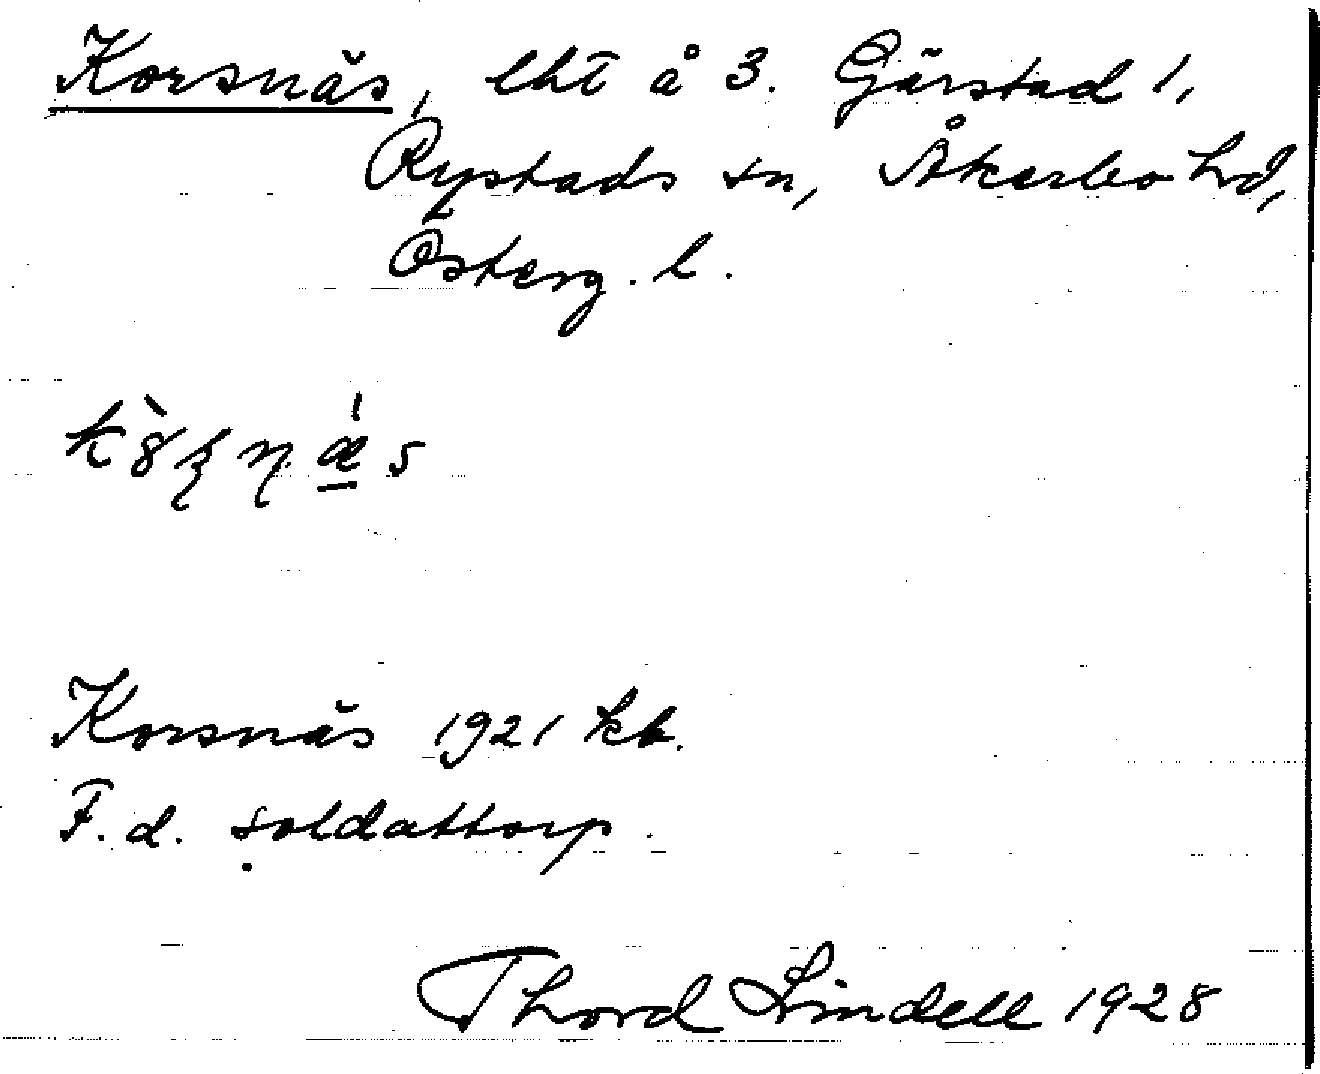 Korsnäs, lht å 3. Gärstad 1,
Rystads sn, Åkerbo hd,
Österg. l.
Korsnäs 1921 kb.
F. d. soldattorp.
Thord Lindell 1928